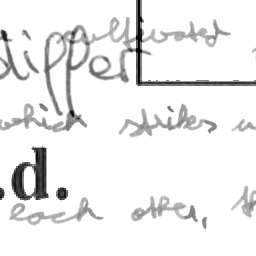 cultivated
slipper
which strikes
.d.
each other,